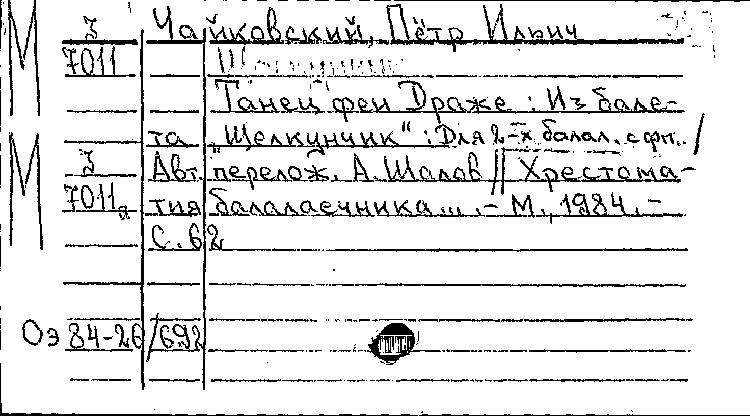 М З Чайковский, Пётр Ильич
7011 Щелкунчик
Танец феи Драже : Из бале-
та „Щелкунчик“ : Для 2-х балал. с фп. /
М З Авт. перелож. А. Шалов // Хрестома-
7011а тия балалаечника... .- М., 1984.-
С. 62
Оэ 84-26/692